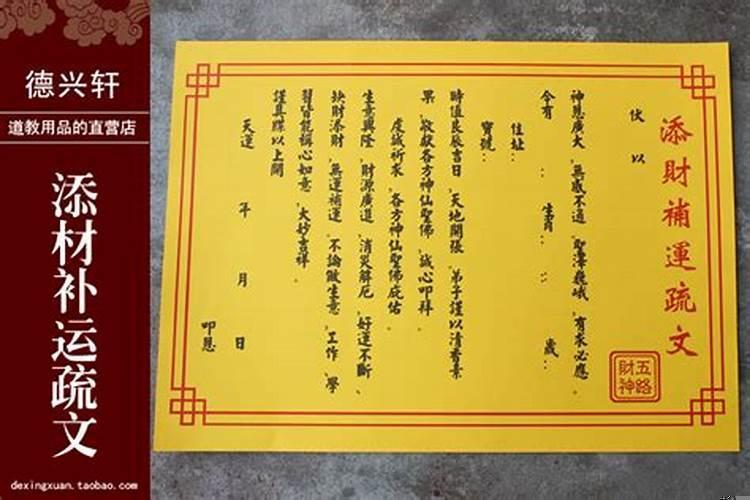 德兴轩
道教用品的直营店
添材补运疏文
dexingxuan.taobao.com
添財補運疏文
五路財神
伏以
神恩廣大，無感不通，聖澤巍峨，有求必應。
今有：生肖：：歲：
住址：
寶號：
時值良辰吉日，天地開張，弟子謹以清香素
果，敬獻各方神仙聖佛，誠心叩拜。
虔誠祈求，各方神仙聖佛庇佑。
生意興隆，財源廣進，消災解厄，好運不斷、
缺財添財，無運補運，不論做生意，工作，學
習皆能稱心如意，大妙吉祥。
謹具牒以上聞
天運 年 月 日
叩恩